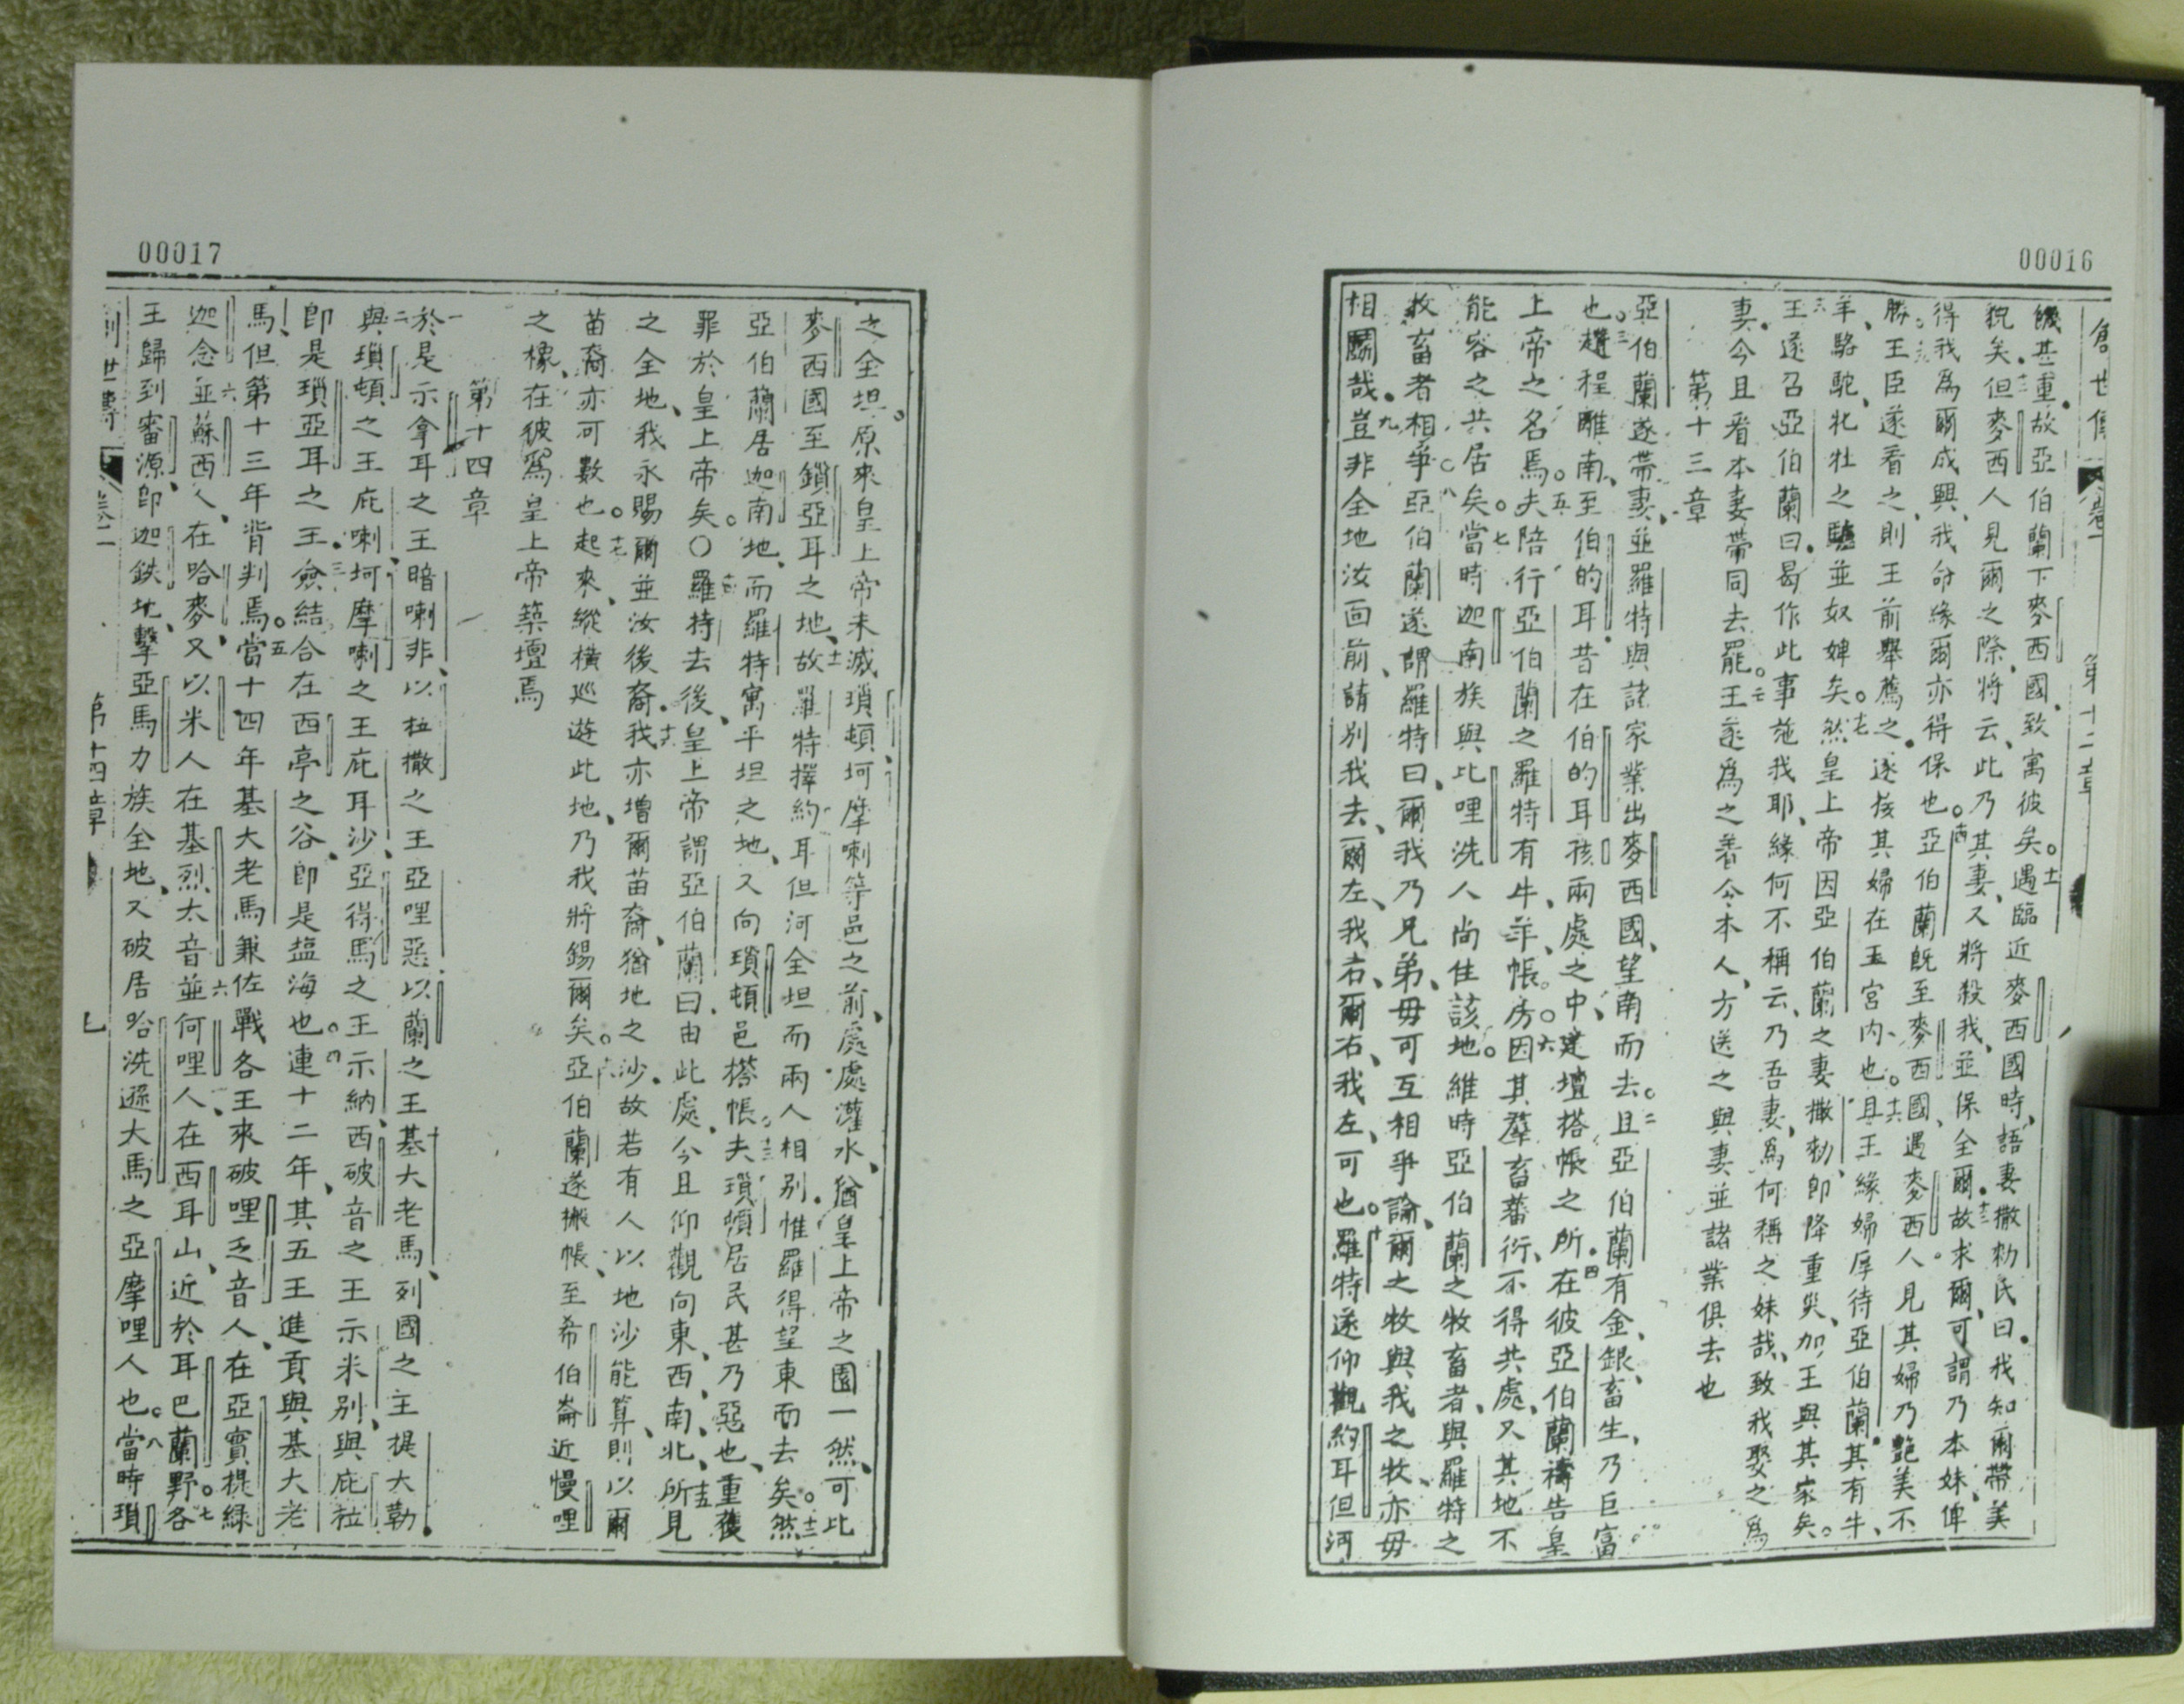 00016
創世傳 卷一 第十二章
饑甚重。故亞伯蘭下麥西國、致寓彼矣。十一遇臨近麥西國時、語妻撒勑氏曰。我知爾帶美
貌矣。十二但麥西人見爾之際、將云、此乃其妻、又將殺我、並保全爾。十三故求爾、可謂乃本妹、俾
得我為爾成興、我命緣爾亦得保也。十四亞伯蘭既至麥西國、遇麥西人見其婦乃艷美不
勝。十五王臣遂看之、則王前舉薦之。遂接其婦在王宮內也。十六且王緣婦厚待亞伯蘭。其有牛、
羊、駱駝、牝牡之驢並奴婢矣。十七然皇上帝因亞伯蘭之妻撒勑、即降重災、加王與其家矣。
十八王遂召亞伯蘭曰。曷作此事施我耶、緣何不稱云、乃吾妻、為何稱之妹哉、致我娶之為
妻。今且看本妻帶同去罷。二十王遂為之著令本人、方送之與妻並諸業俱去也
第十三章
亞伯蘭遂帶妻、並羅特與諸家業出麥西國、望南而去。二且亞伯蘭有金、銀、畜生、乃巨富
也。三趲程離南、至伯的耳。昔在伯的耳孩兩處之中、建壇搭帳之所。四在彼亞伯蘭禱告皇
上帝之名焉。五夫陪行亞伯蘭之羅特有牛、羊、帳房。六因其羣畜蕃衍、不得共處、又其地不
能容之共居矣。七當時迦南族與比哩洗人尚住該地。維時亞伯蘭之牧畜者、與羅特之
牧畜者相爭。八亞伯蘭遂謂羅特曰、爾我乃兄弟、毋可互相爭論、爾之牧與我之牧、亦毋
相鬬哉。九豈非全地汝面前、請別我去、爾左、我右、爾右、我左、可也。十羅特遂仰觀約耳但河
00017
之全坦。原來皇上帝未滅瑣頓、坷摩喇等邑之前、處處灌水、猶皇上帝之園一然、可比
麥西國至鎖亞耳之地、十一故羅特擇約耳但河全坦而兩人相別。惟羅得望東而去矣。十二然
亞伯蘭居迦南地、而羅特寓平坦之地、又向瑣頓邑搭帳。十三夫瑣頓居民甚乃惡也、重獲
罪於皇上帝矣。〇十四羅特去後、皇上帝謂亞伯蘭曰、由此處、今且仰觀向東、西、南、北、十五所見
之全地、我永賜爾並汝後裔。十六我亦增爾苗裔、猶地之沙。故若有人以地沙能算、則以爾
苗裔亦可數也。十七起來、縱橫巡遊此地、乃我將錫爾矣。十八亞伯蘭遂搬帳、至希伯崙近慢哩
之橡、在彼為皇上帝築壇焉
第十四章
一於是示拿耳之王暗喇非、以拉撒之王亞哩惡、以蘭之王基大老馬、列國之主提大勒。
二與瑣頓之王庇喇、坷摩喇之王庇耳沙、亞得馬之王示納、西破音之王示米別、與庇拉
即是瑣亞耳之王。三僉結合在西亭之谷、即是鹽海也。四連十二年、其五王進貢與基大老
馬、但第十三年背判焉。五當十四年基大老馬兼佐戰各王來破哩乏音人、在亞實提綠
迦念並蘇西人、在哈麥、又以米人在基烈太音六並何哩人、在西耳山、近於耳巴蘭野。七各
王歸到審源、即迦鉄、尅擊亞馬力族全地、又破居哈洗遜大馬之亞摩哩人也。八當時瑣
創世傳 卷一 第十四章 七